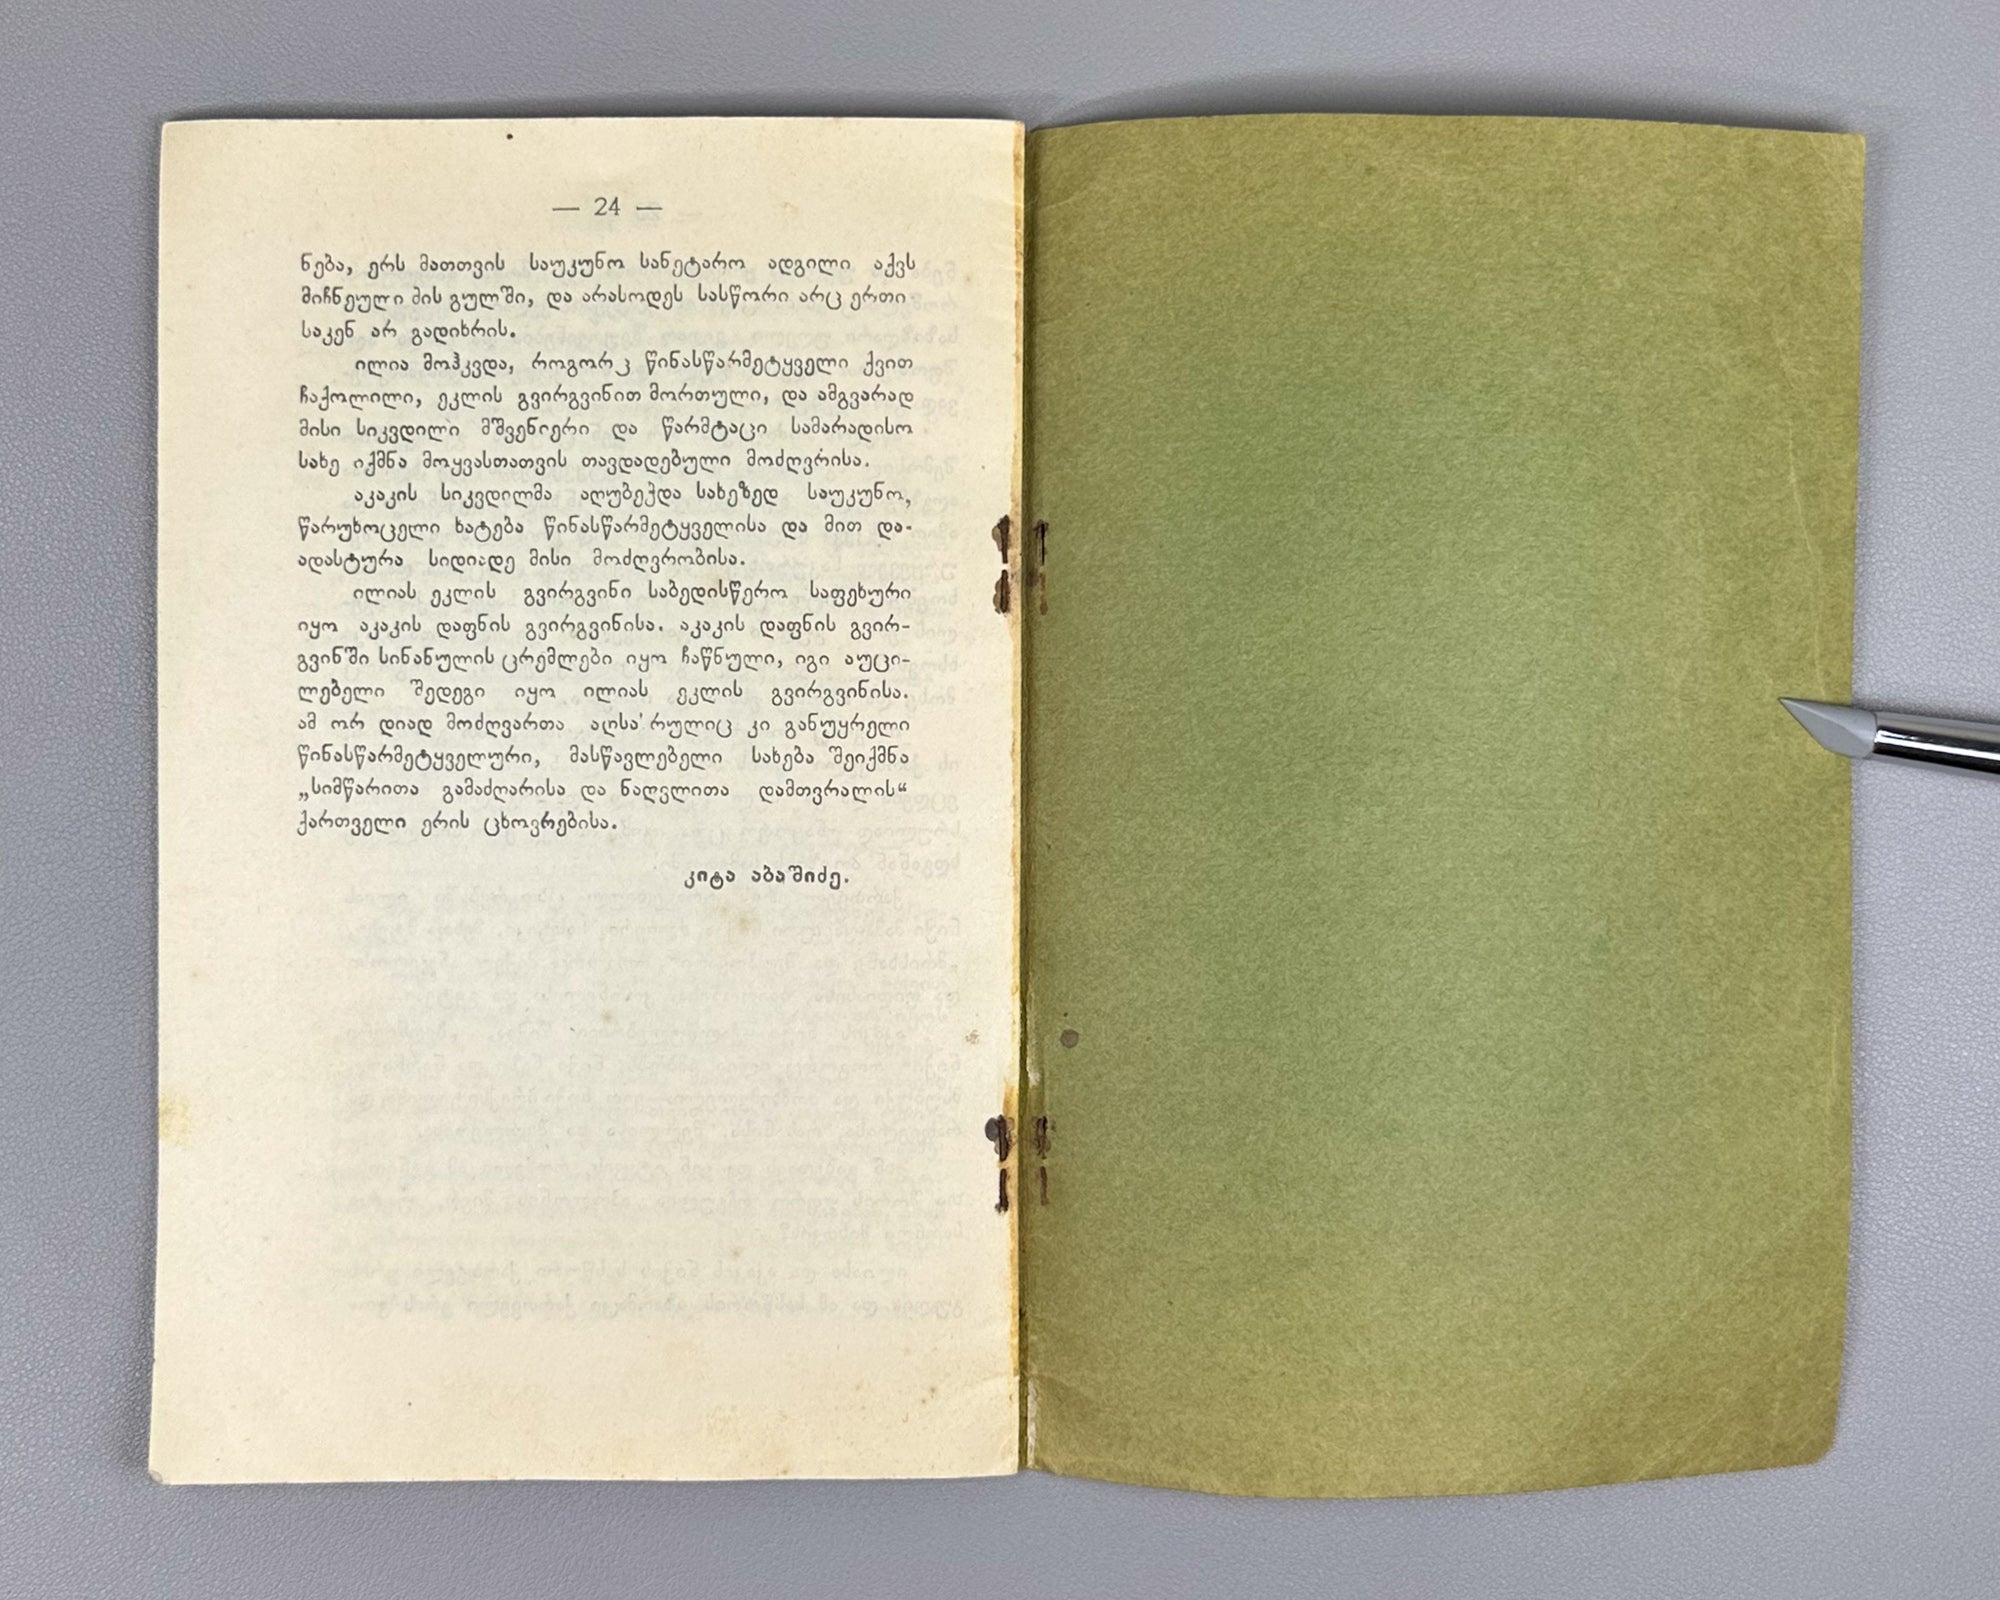 — 24 —
ნება, ერს მათთვის საუკუნო სანეტარო ადგილი აქვს
მიჩნეული მის გულში, და არასოდეს სასწორი არც ერთი
საკენ არ გადიხრის.
ილია მოჰკვდა, როგორც წინასწარმეტყველი ქვით
ჩაქოლილი, ეკლის გვირგვინით მორთული, და ამგვარად
მისი სიკვდილი მშვენიერი და წარმტაცი სამარადისო
სახე იქმნა მოყვასთათვის თავდადებული მოძღვრისა.
აკაკის სიკვდილმა აღუბეჭდა სახეზედ საუკუნო,
წარუხოცელი ხატება წინასწარმეტყველისა და მით და-
ადასტურა სიდიადე მისი მოძღვრობისა.
ილიას ეკლის გვირგვინი საბედისწერო საფეხური
იყო აკაკის დაფნის გვირგვინისა. აკაკის დაფნის გვირ-
გვინში სინანულის ცრემლები იყო ჩაწნული, იგი აუცი-
ლებელი შედეგი იყო ილიას ეკლის გვირგვინისა.
ამ ორ დიად მოძღვართა აღსა'რულიც კი განუყრელი
წინასწარმეტყველური, მასწავლებელი სახება შეიქმნა
„სიმწარითა გამაძღარისა და ნაღვლითა დამთვრალის“
ქართველი ერის ცხოვრებისა.
კიტა აბაშიძე.